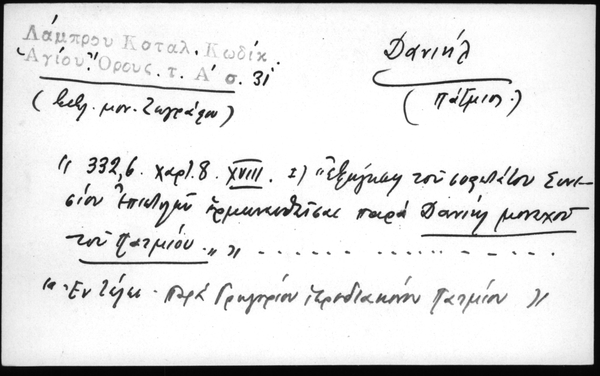 Λάμπρου Κοταλ. Κωδίκ.
Ἁγίου Ὄρους. τ. Α' σ. 31
Δανιήλ
(βιβλ. μον. Ζωγράφου)
(Πάτμιος.)
" 332,6. χαρτ. 8. XVIII. 2) "Ἐξήγησις τοῦ σοφωτάτου Συνε-
σίου Ἐπιστολῶν ἑρμηνευθεῖσαι παρὰ Δανιὴλ μοναχοῦ
τοῦ Πατμίου „ "
" Ἐν τέλει - παρὰ Γρηγορίου ἱεροδιακόνου Πατμίου "